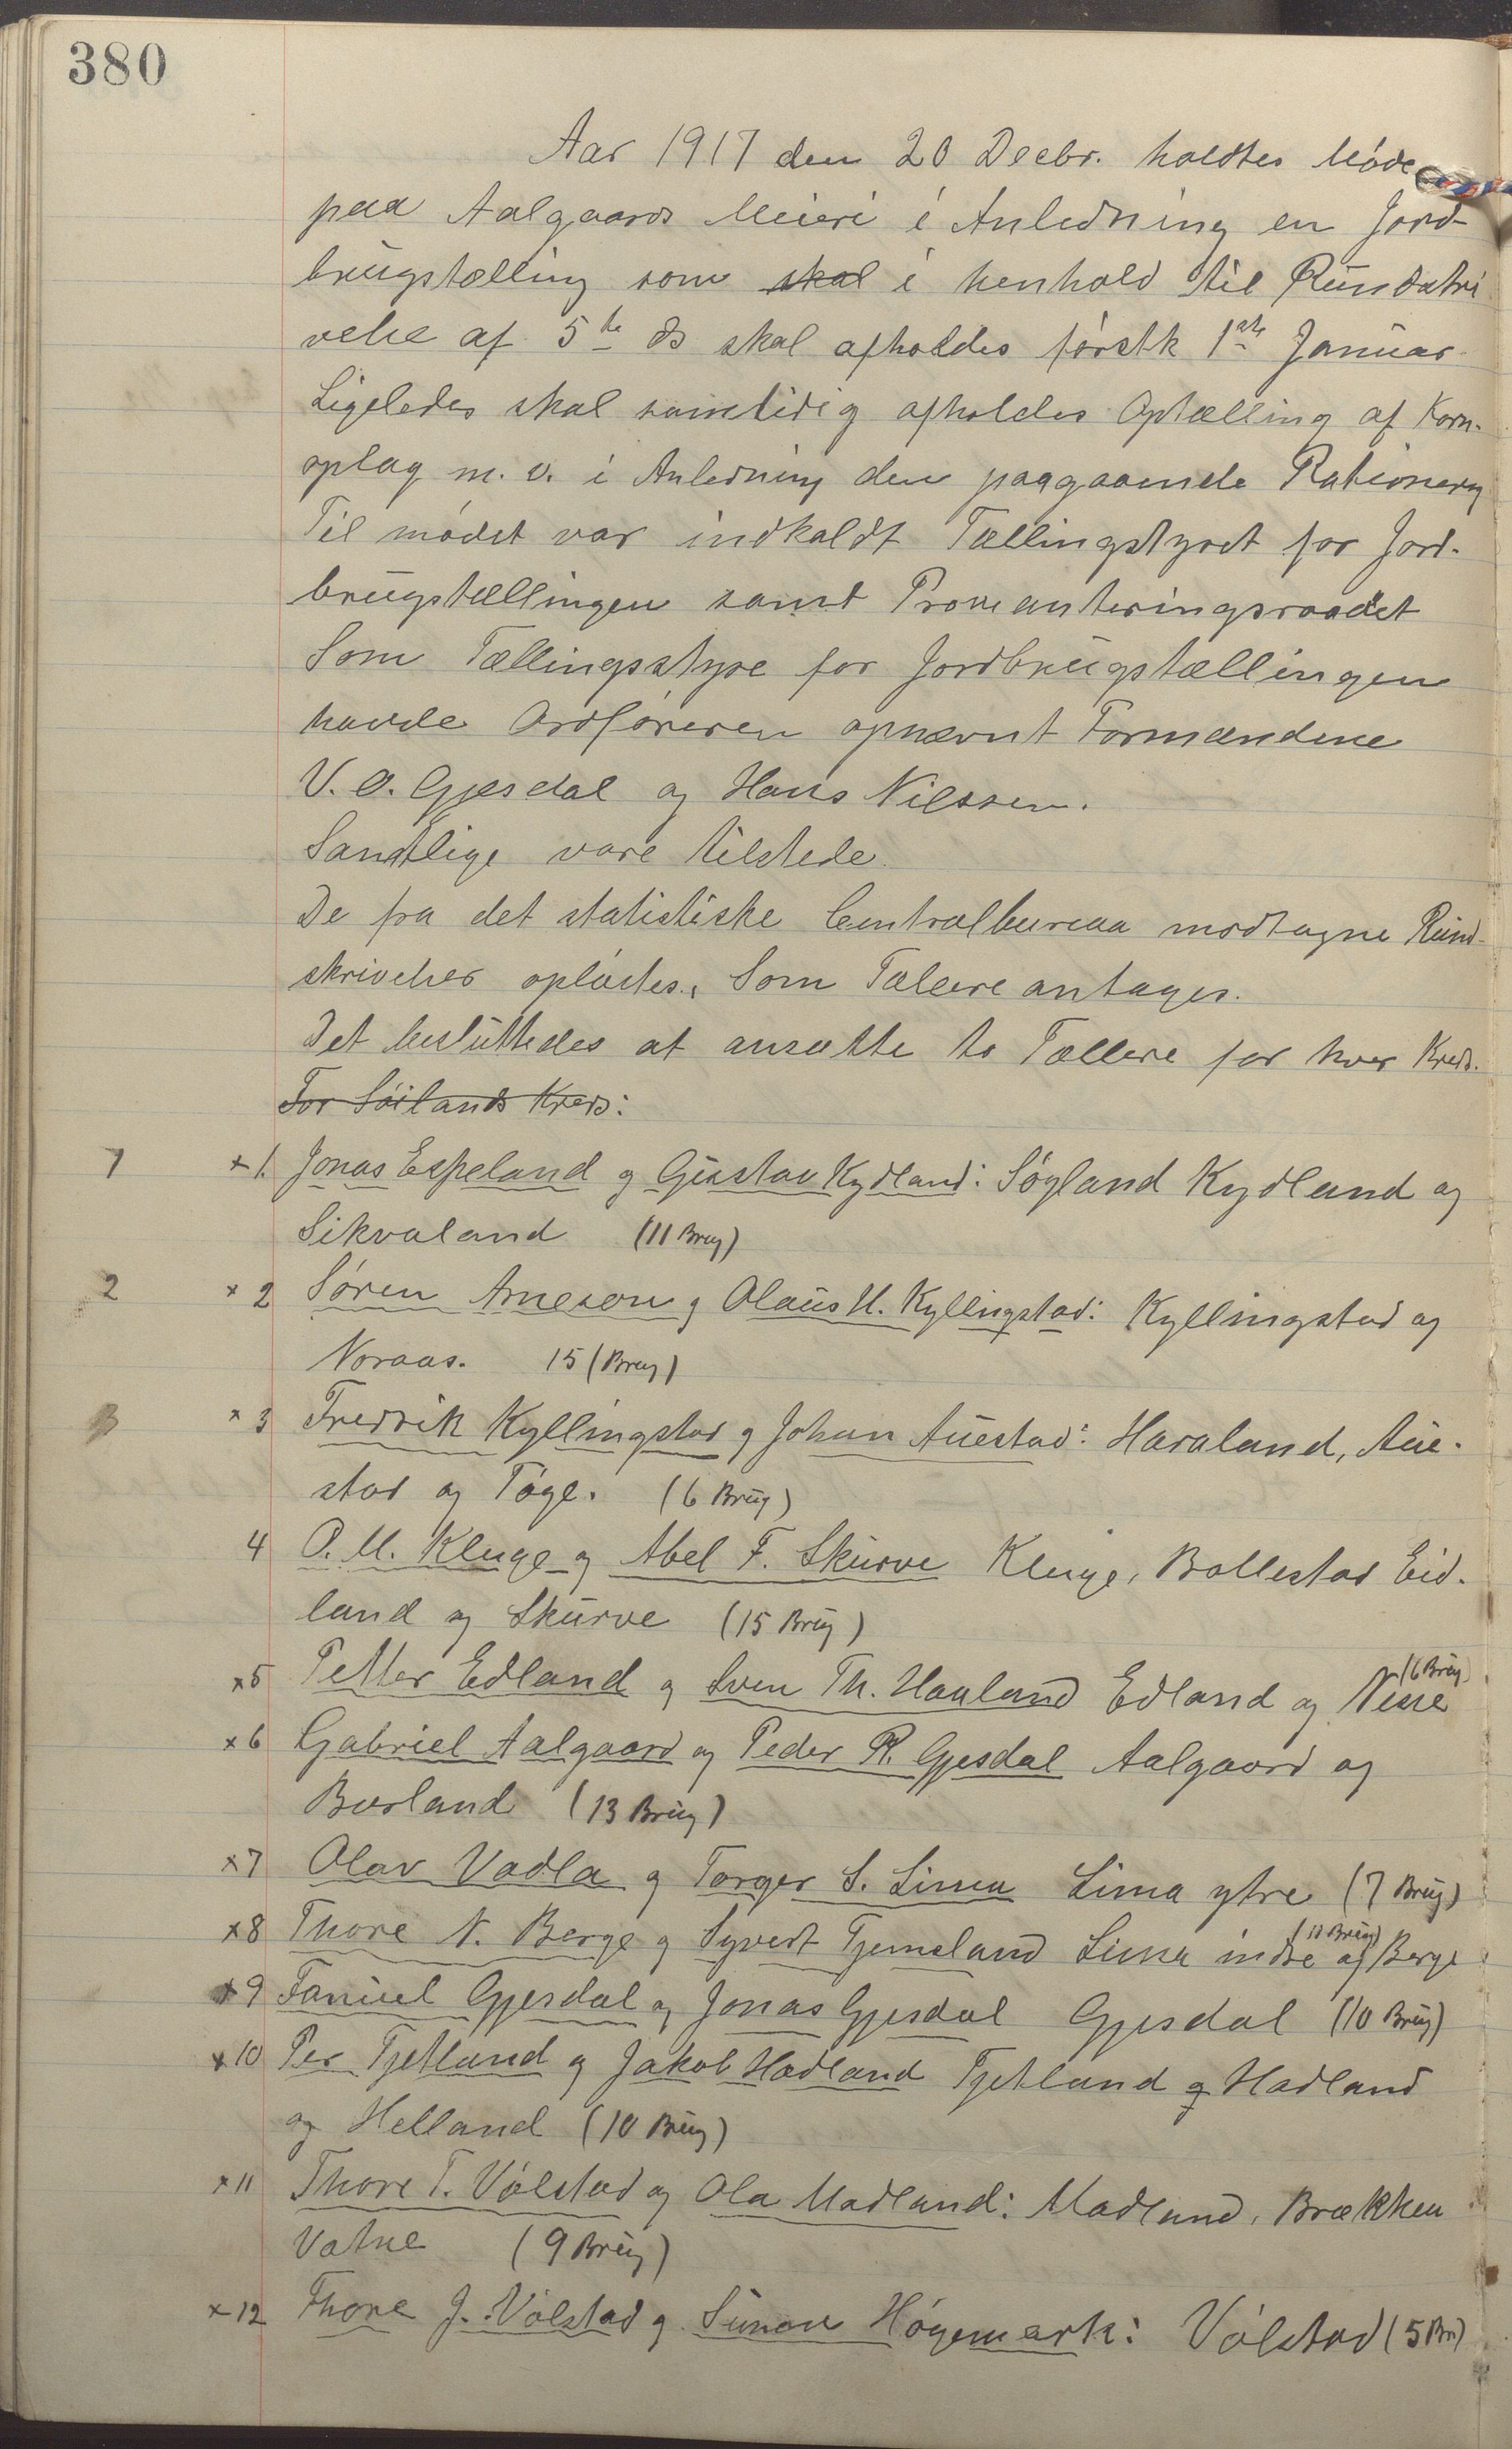 380
Aar 1917 den 20 Decbr. holdtes Møde
paa Aalgaards Meieri i Anledning en Jord-
brugstælling som skal i henhold til Rundskri
velse af 5te ds skal afholdes førstk 1ste Januar.
Ligeledes skal samtidig afholdes Optælling af Korn-
oplag m.v. i Anledning den paagaaende Rationering
Til mødet var indkaldt Tællingstyret for Jord-
brugstællingen samt Provianteringsraadet
Som Tællingsstyre for Jordbrugstællingen
havde Ordføreren opnævnt Formændene
V. O. Gjesdal og Hans Nilssen.
Samtlige vare tilstede.
De fra det statistiske Centralbureau modtagne Rund-
skrivelser oplæstes. Som Tællere antages.
Det besluttedes at ansætte to Tællere for hver Kreds.
For Søilands Kreds:
1 x1. Jonas Espeland og Gustav Kydland: Søyland Kydland og
Sikvaland (11 Brug)
2 x2 Søren Arnesen og Olaus H. Kyllingstad: Kyllingstad og
Noraas. 15 (Brug)
3 x3 Fredrik Kyllingstad og Johan Auestad: Haraland, Aue-
stad og Tøge. (6 Brug)
4 O. M. Kluge og Abel F. Skurve Kluge, Bollestad Eid-
land og Skurve (15 Brug)
x5 Petter Edland og Sven Th. Haaland Edland og Nesse (6 Brug)
x6 Gabriel Aalgaard og Peder R. Gjesdal Aalgaard og
Bærland (13 Brug)
x7 Olav Vadla og Torger S. Lima Lima ytre (7 Brug)
x8 Thore N. Berge og Syvert Tjemsland Lima indre og Berge (11 Brug)
x9 Faniel Gjesdal og Jonas Gjesdal Gjesdal (10 Brug)
x10 Per Tjetland og Jakob Hadland Tjetland og Hadland
og Helland (10 Brug)
x11 Thore T. Vølstad og Ola Madland: Madland, Brækken
Vatne (9 Brug)
x12 Thore J. Vølstad og Simon Høgemark: Vølstad (5 Br)